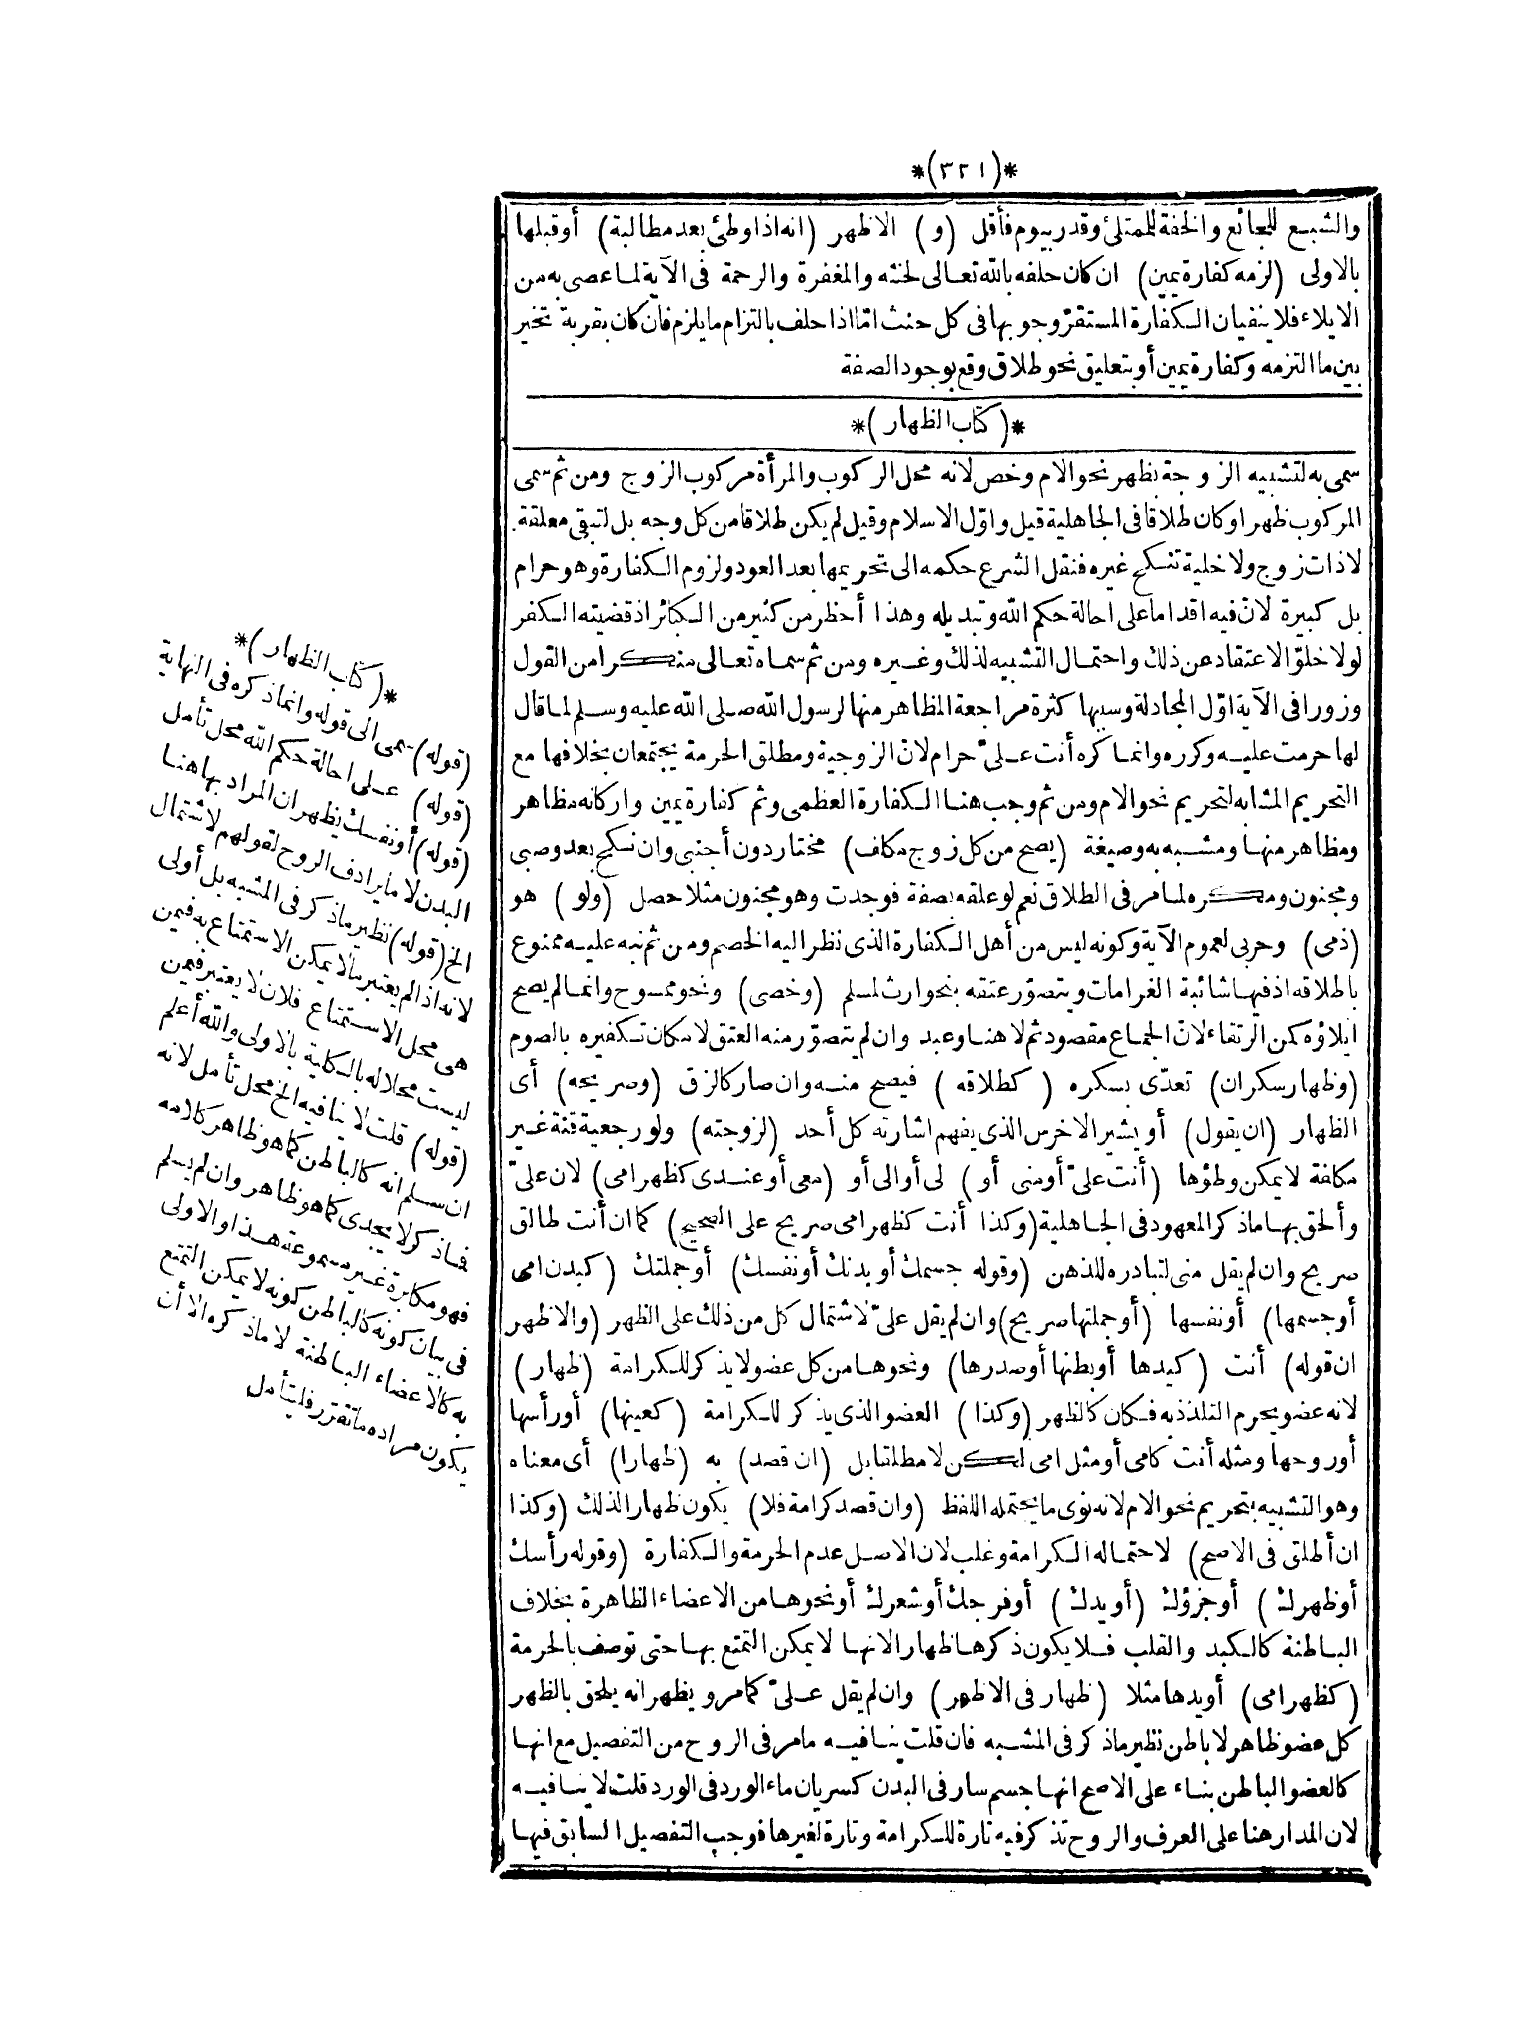 *(٣٢١)*
والشبع للجائع والخفة للممتلئ وقدر بيوم فأقل (و) الاظهر (انه اذا وطئ بعد مطالبة) أو قبلها
بالاولى (لزمه كفارة يمين) ان كان حلفه بالله تعالى لحنثه والمغفرة والرحمة فى الآية لما عصى به من
الايلاء فلا ينفيان الكفارة المستقرّ وجوبها فى كل حنث امّا اذا حلف بالتزام ما يلزم فان كان بقربة تخير
بين ما التزمه وكفارة يمين أو بتعليق نحو طلاق وقع بوجود الصفة
*(كتاب الظهار)*
سمى به لتشبيه الزوجة بظهر نحو الام وخص لانه محل الركوب والمرأة مركوب الزوج ومن ثم سمى
المركوب ظهرا وكان طلاقا فى الجاهلية قيل واوّل الاسلام وقيل لم يكن طلاقا من كل وجه بل لتبقى معلقة
لا ذات زوج ولا خلية تنكح غيره فنقل الشرع حكمه الى تحريمها بعد العود ولزوم الكفارة وهو حرام
بل كبيرة لانّ فيه اقداما على احالة حكم الله وتبديله وهذا أحظر من كثير من الكبائر اذ قضيته الكفر
لولا خلوّ الاعتقاد عن ذلك واحتمال التشبيه لذلك وغيره ومن ثم سماه تعالى منكرا من القول
وزورا فى الآية اوّل المجادلة وسببها كثرة مراجعة المظاهر منها لرسول الله صلى الله عليه وسلم لما قال
لها حرمت عليه وكرره وانما كره أنت علىّ حرام لانّ الزوجية ومطلق الحرمة يجتمعان بخلافها مع
التحريم المشابه لتحريم نحو الام ومن ثم وجب هنا الكفارة العظمى وثم كفارة يمين واركانه مظاهر
ومظاهر منها ومشبه به وصيغة (يصح من كل زوج مكلف) مختار دون أجنبى وان نكح بعد وصبى
ومجنون ومكره لما مر فى الطلاق نعم لو علقه بصفة فوجدت وهو مجنون مثلا حصل (ولو) هو
(ذمى) وحربى لعموم الآية وكونه ليس من أهل الكفارة الذى نظر اليه الخصم ومن ثم نبه عليه ممنوع
باطلاقه اذ فيها شائبة الغرامات ويتصوّر عتقه بنحو ارث لمسلم (وخصى) ونحو ممسوح وانما لم يصح
ايلاؤه كمن الرتقاء لانّ الجماع مقصود ثم لا هنا وعبد وان لم يتصوّر منه العتق لامكان تكفيره بالصوم
(وظهار سكران) تعدّى بسكره (كطلاقه) فيصح منه وان صار كالزق (وصريحه) أى
الظهار (ان يقول) أو يشير الاخرس الذى يفهم اشارته كل أحد (لزوجته) ولو رجعية قنة غير
مكلفة لا يمكن وطؤها (أنت علىّ أو منى أو) لى أو الى أو (معى أو عندى كظهر امى) لان علىّ
وألحق بها ما ذكر المعهود فى الجاهلية (وكذا أنت كظهر امى صريح على الصحيح) كما ان أنت طالق
صريح وان لم يقل منى لتبادره للذهن (وقوله جسمك أو بدنك أو نفسك) أو جملتك (كبدن امى
أو جسمها) أو نفسها (أو جملتها صريح) وان لم يقل علىّ لاشتمال كل من ذلك على الظهر (والاظهر
ان قوله) أنت (كيدها أو بطنها أو صدرها) ونحوها من كل عضو لا يذكر للكرامة (ظهار)
لانه عضو يحرم التلذذ به فكان كالظهر (وكذا) العضو الذى يذكر للكرامة (كعينها) أو رأسها
أو روحها ومثله أنت كامى أو مثل امى لكن لا مطلقا بل (ان قصد) به (ظهارا) أى معناه
وهو التشبيه بتحريم نحو الام لانه نوى ما يحتمله اللفظ (وان قصد كرامة فلا) يكون ظهارا لذلك (وكذا
ان أطلق فى الاصح) لاحتماله الكرامة وغلب لان الاصل عدم الحرمة والكفارة (وقوله رأسك
أو ظهرك) أو جزؤك (أو يدك) أو فرجك أو شعرك أو نحوها من الاعضاء الظاهرة بخلاف
الباطنة كالكبد والقلب فلا يكون ذكرها ظهارا لانها لا يمكن التمتع بها حتى توصف بالحرمة
(كظهر امى) أو يدها مثلا (ظهار فى الاظهر) وان لم يقل علىّ كما مر ويظهر انه يلحق بالظهر
كل عضو ظاهر لا باطن نظير ما ذكر فى المشبه فان قلت ينافيه ما مر فى الروح من التفصيل مع انها
كالعضو الباطن بناء على الاصح انها جسم سار فى البدن كسريان ماء الورد فى الورد قلت لا ينافيه
لان المدار هنا على العرف والروح تذكر فيه تارة للكرامة وتارة لغيرها فوجب التفصيل السابق فيها
*(كتاب الظهار)*
(قوله) سمى الى قوله وانما ذكره فى النهاية
(قوله) على احالة حكم الله محل تأمل
(قوله) أو نفسك يظهر ان المراد بها هنا
البدن لا ما يرادف الروح لقولهم لاشتمال
الخ (قوله) نظير ما ذكر فى المشبه بل أولى
لانه اذا لم يعتبر ما لا يمكن الاستمتاع به فيمن
هى محل الاستمتاع فلان لا يعتبر فيمن
ليست محلا له بالكلية بالاولى والله أعلم
(قوله) قلت لا ينافيه الخ محل تأمل لانه
ان سلم انه كالباطن كما هو ظاهر كلامه
فما ذكر لا يجدى كما هو ظاهر وان لم يسلم
فهو مكابرة غير مسموعة هذا والاولى
فى بيان كونه كالباطن كونه لا يمكن التمتع
به كالاعضاء الباطنة لا ما ذكره الا أن
يكون مراده ما تقرر فليتأمل